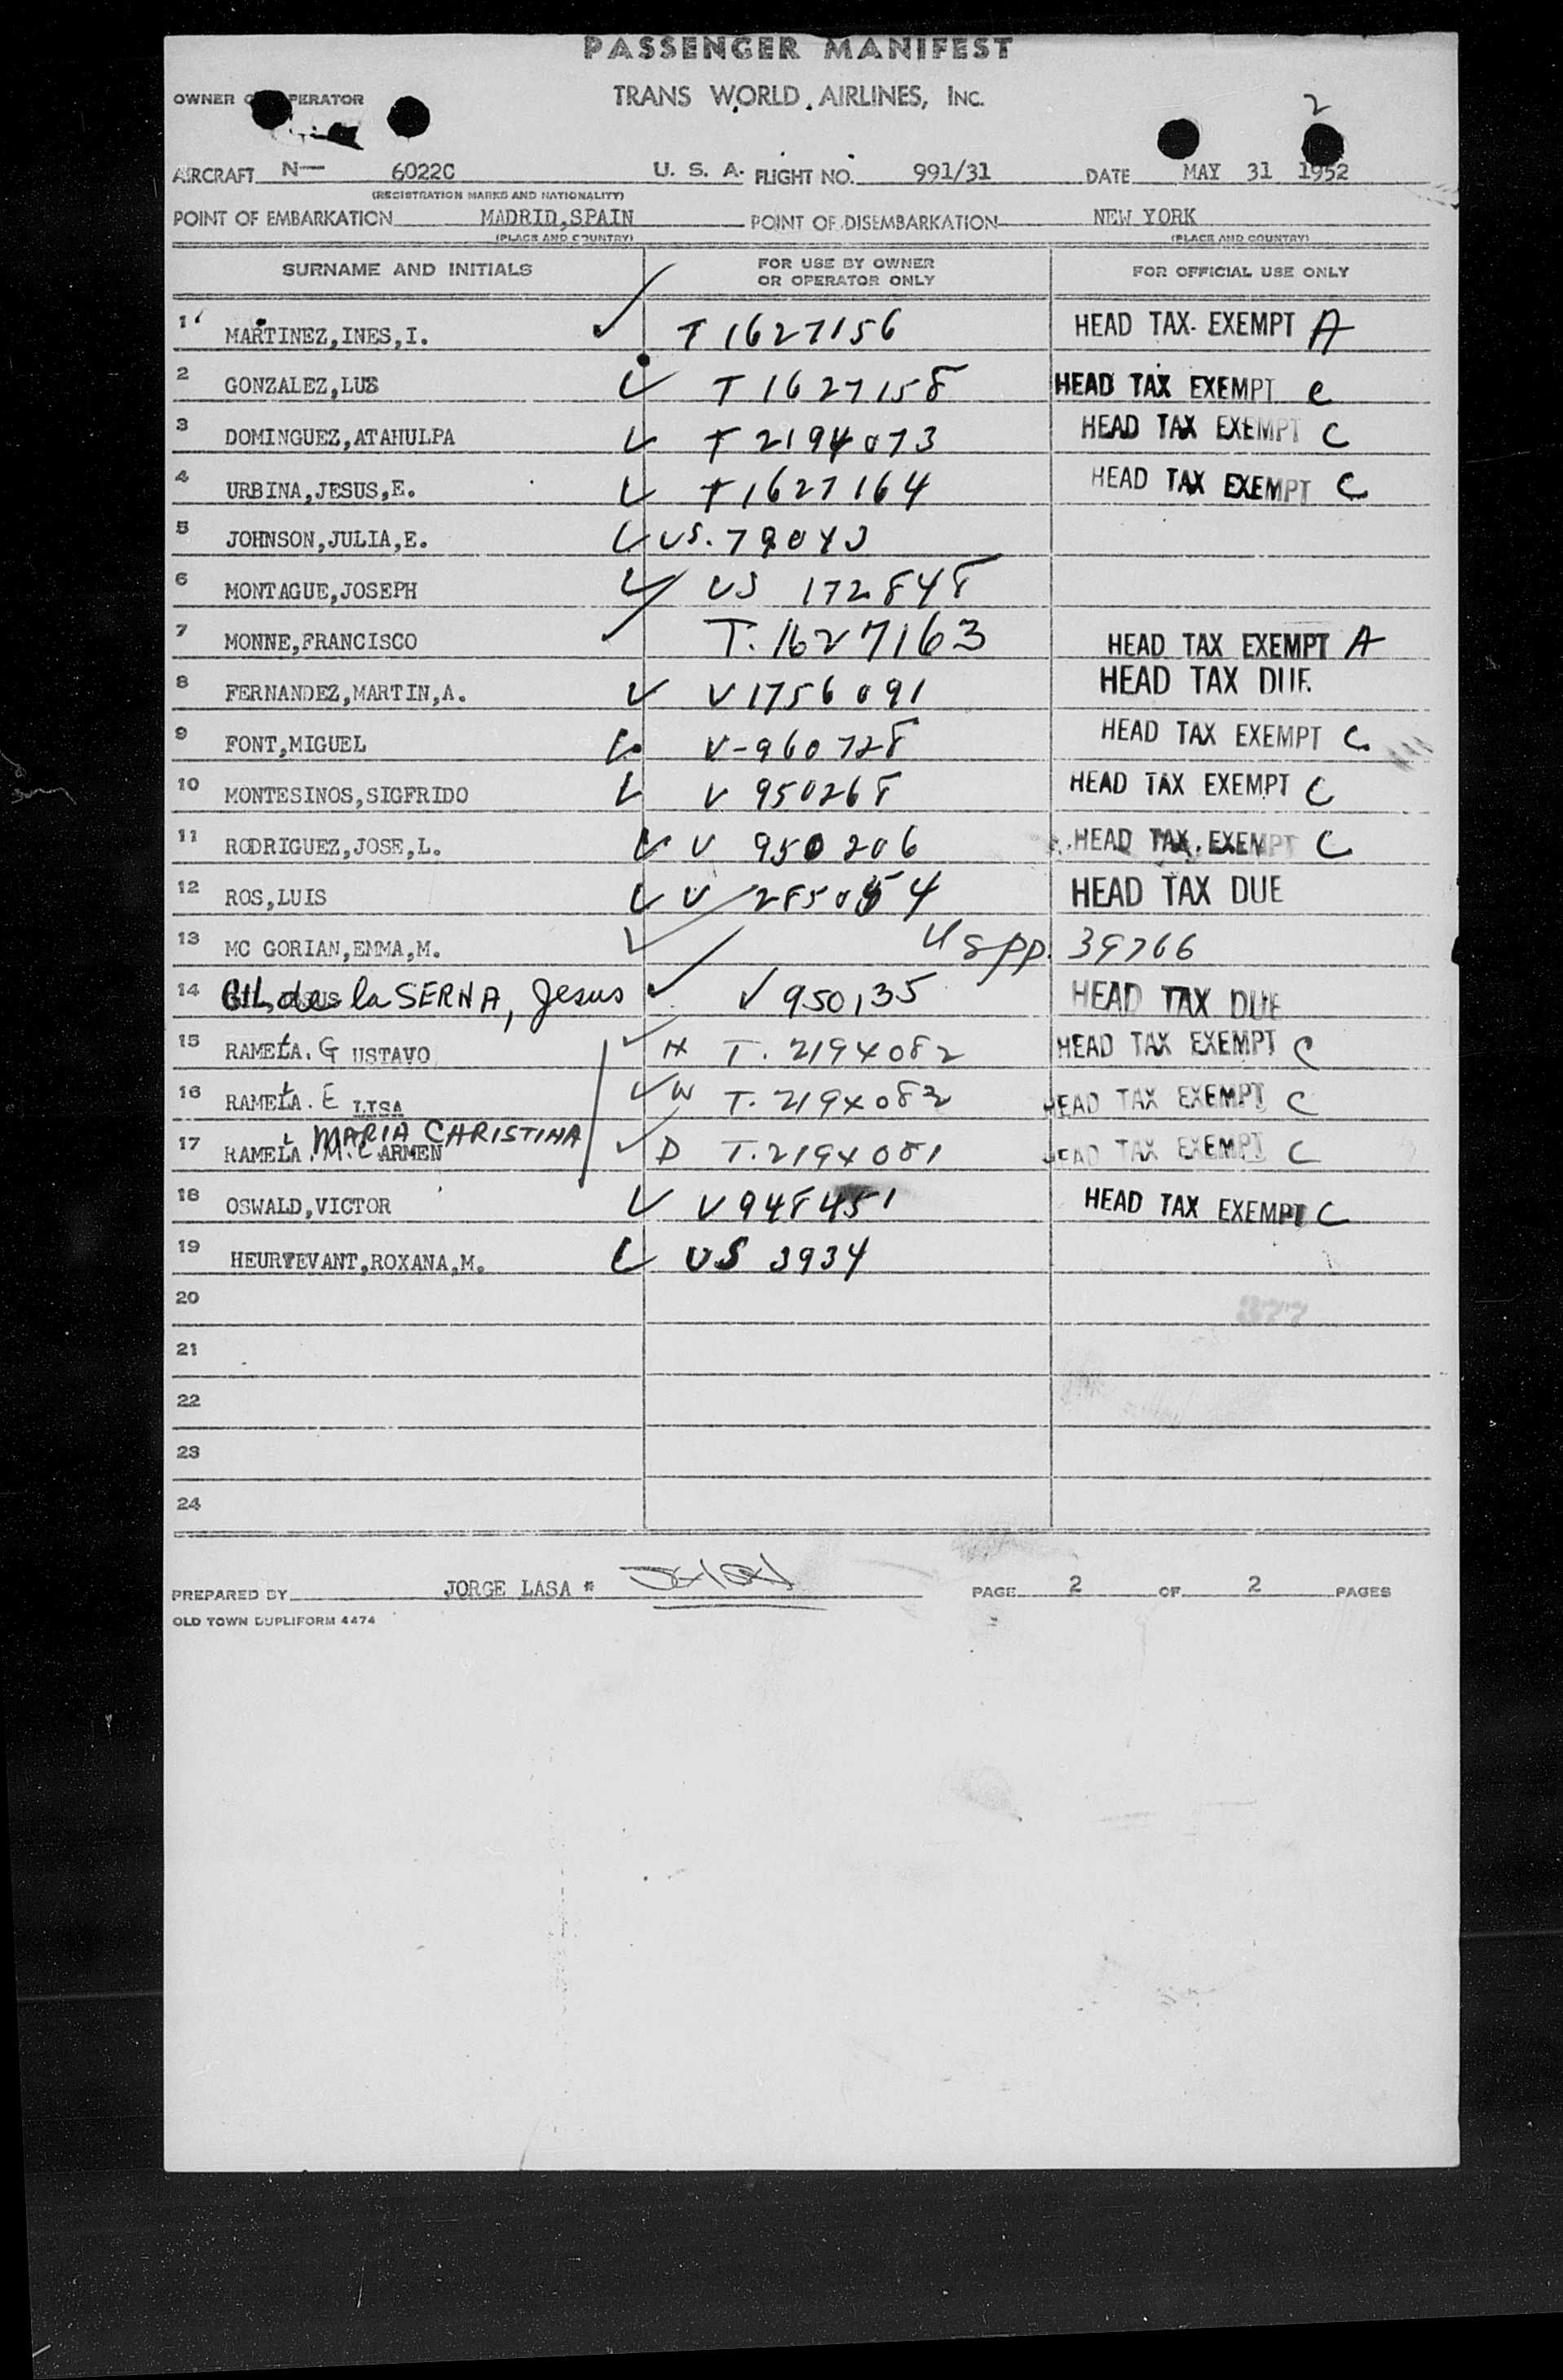 PASSENGER MANIFEST
TRANS WORLD AIRLINES, INC.
OWNER OPERATOR
2
AIRCRAFT N— 6022C U. S. A. FLIGHT NO. 991/31 DATE MAY 31 1952
(REGISTRATION MARKS AND NATIONALITY)
POINT OF EMBARKATION MADRID,SPAIN POINT OF DISEMBARKATION NEW YORK
(PLACE AND COUNTRY) (PLACE AND COUNTRY)
SURNAME AND INITIALS FOR USE BY OWNER OR OPERATOR ONLY FOR OFFICIAL USE ONLY
1 MARTINEZ,INES,I. T 1627156 HEAD TAX EXEMPT A
2 GONZALEZ, T 1627158 HEAD TAX EXEMPT C
3 DOMINGUEZ,ATAHULPA T 2194073 HEAD TAX EXEMPT C
4 URBINA,JESUS,E. T1627164 HEAD TAX EXEMPT C
5 JOHNSON,JULIA,E. US.
6 MONTAGUE,JOSEPH US 172848
7 MONNE,FRANCISCO T.1627163 HEAD TAX EXEMPT A
8 FERNANDEZ,MARTIN,A. V1756091 HEAD TAX DUE
9 FONT,MIGUEL V-960728 HEAD TAX EXEMPT C
10 MONTESINOS,SIGFRIDO V 950268 HEAD TAX EXEMPT C
11 RODRIGUEZ,JOSE,L. V 950206 HEAD TAX EXEMPT C
12 ROS,LUIS V HEAD TAX DUE
13 MC GORIAN,EMMA,M. US pp. 39766
14 GIL de la SERNA, Jesus V 950135 HEAD TAX DUE
15 RAMELA. G USTAVO H T. 2194082 HEAD TAX EXEMPT C
16 RAMELA. E LISA W T. HEAD TAX EXEMPT C
MARIA CHRISTINA
17 RAMELA .M.C ARMEN D T.2194081 HEAD TAX EXEMPT C
18 OSWALD,VICTOR V948451 HEAD TAX EXEMPT C
19 HEURTEVANT,ROXANA,M. US 3934
20
377
21
22
23
24
PREPARED BY JORGE LASA * PAGE 2 OF 2 PAGES
OLD TOWN DUPLIFORM 4474